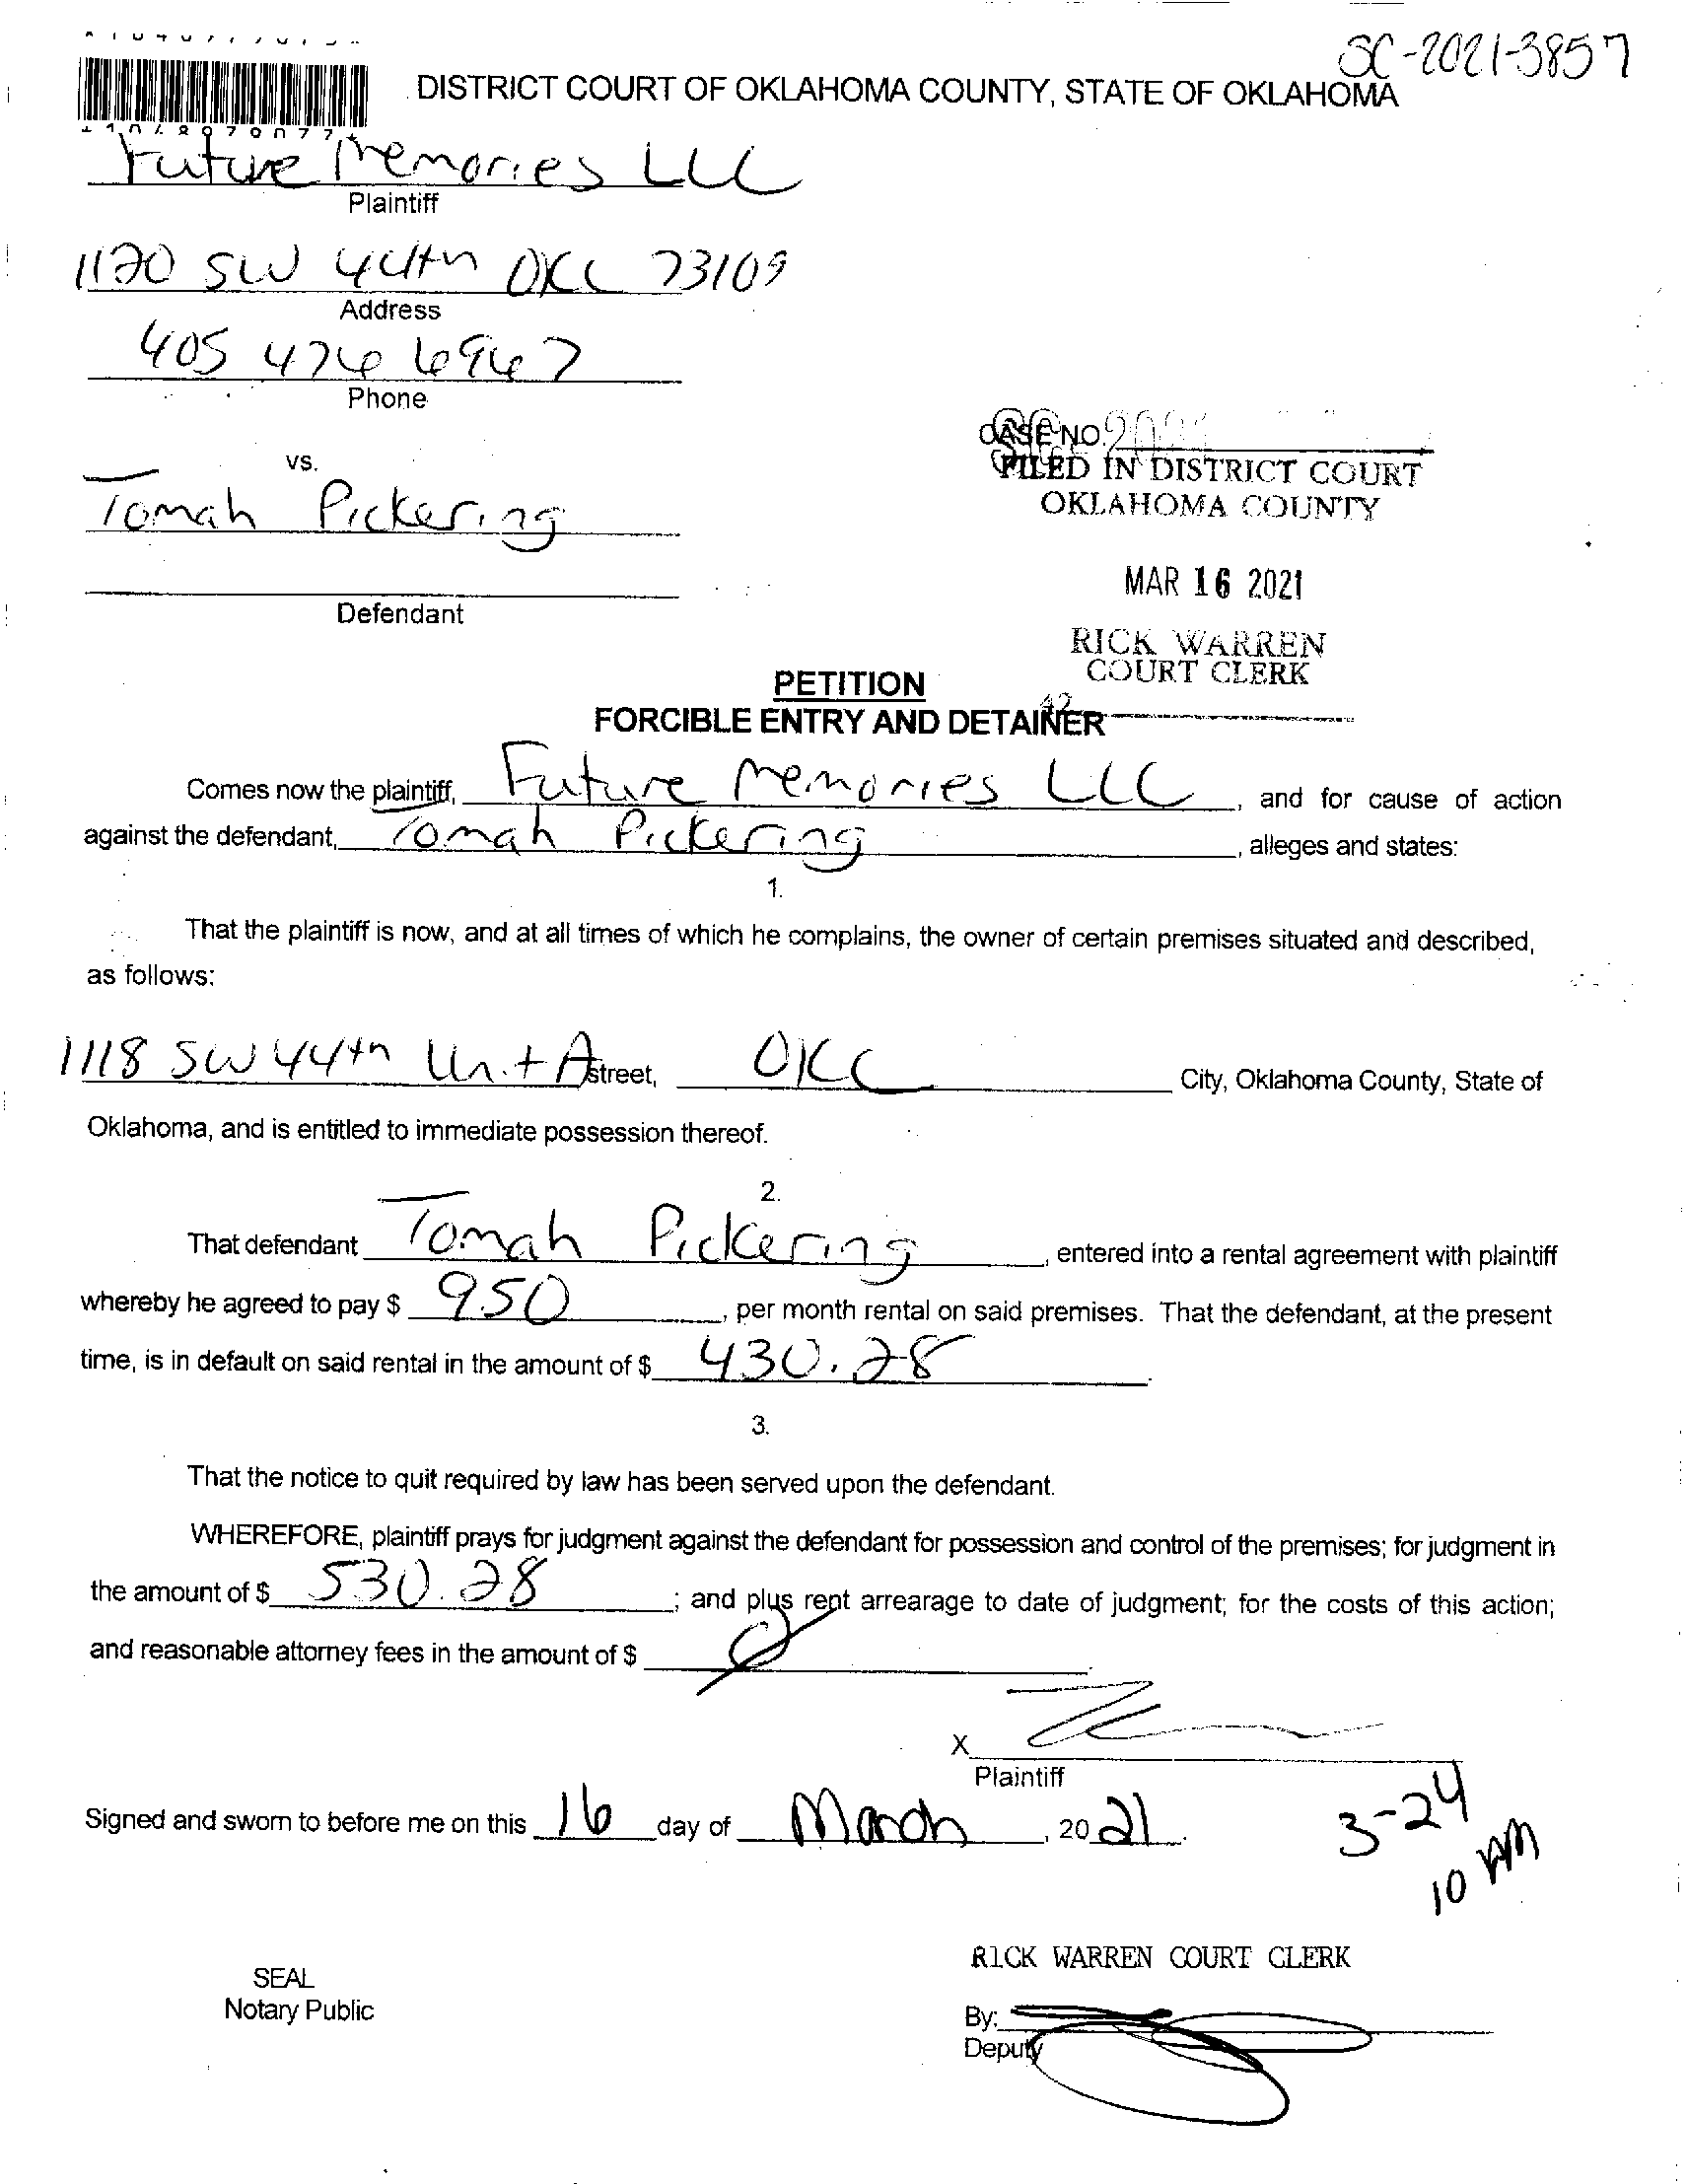 SC-2021-3857
DISTRICT COURT OF OKLAHOMA COUNTY, STATE OF OKLAHOMA
Future Memories LLC
Plaintiff
1120 SW 44th OKC 73109
Address
405 476 6967
Phone
CASE NO.
FILED IN DISTRICT COURT
OKLAHOMA COUNTY
vs.
Tomah Pickering
MAR 16 2021
Defendant
RICK WARREN
COURT CLERK
PETITION
42
FORCIBLE ENTRY AND DETAINER
Comes now the plaintiff, Future Memories LLC, and for cause of action
against the defendant, Tomah Pickering, alleges and states:
1.
That the plaintiff is now, and at all times of which he complains, the owner of certain premises situated and described,
as follows:
1118 SW 44th Unit A street, OKC City, Oklahoma County, State of
Oklahoma, and is entitled to immediate possession thereof.
2.
That defendant Tomah Pickering, entered into a rental agreement with plaintiff
whereby he agreed to pay $ 950, per month rental on said premises. That the defendant, at the present
time, is in default on said rental in the amount of $ 430.28.
3.
That the notice to quit required by law has been served upon the defendant.
WHEREFORE, plaintiff prays for judgment against the defendant for possession and control of the premises; for judgment in
the amount of $ 530.28; and plus rent arrearage to date of judgment; for the costs of this action;
and reasonable attorney fees in the amount of $ 0.
X
Plaintiff
Signed and sworn to before me on this 16 day of March, 2021.
3-24
10 AM
RICK WARREN COURT CLERK
SEAL
Notary Public
By:
Deputy